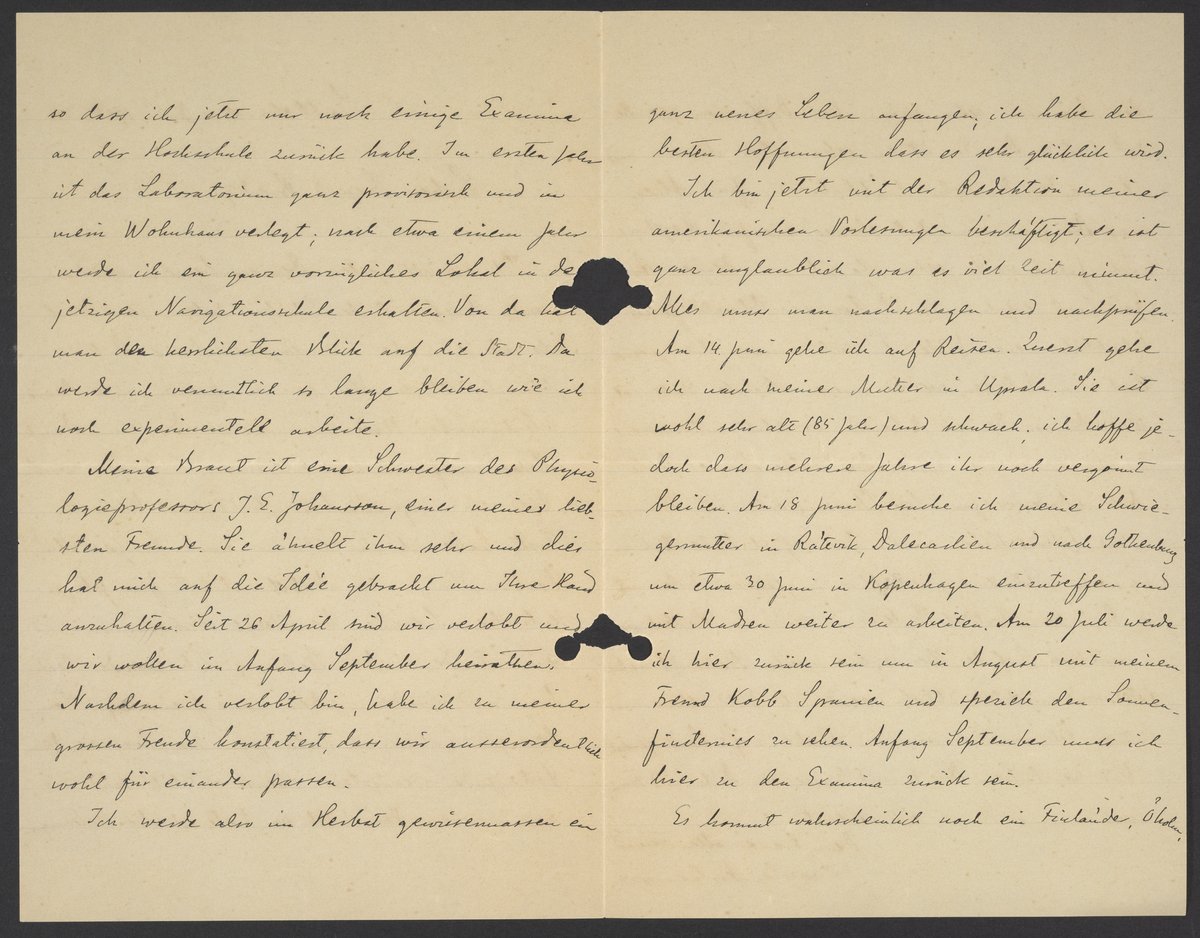 so dass ich jetzt nur noch einige Examina
an der Hochschule zurück habe. Im ersten Jahr
ist das Laboratorium ganz provisorisch und in
mein Wohnhaus verlegt; nach etwa einem Jahr
werde ich ein ganz vorzügliches Lokal in de
jetzigen Navigationsschule erhalten. Von da hat
man den herrlichsten Blick auf die Stadt. Da
werde ich vermutlich so lange bleiben wie ich
noch experimentell arbeite.
Meine Braut ist eine Schwester des Physio-
logieprofessors J. E. Johansson, einer meiner lieb-
sten Freunde. Sie ähnelt ihm sehr und dies
hat mich auf die Idée gebracht um Ihre Hand
anzuhalten. Seit 26 April sind wir verlobt und
wir wollen im Anfang September heirathen.
Nachdem ich verlobt bin, habe ich zu meiner
grossen Freude konstatiert, dass wir ausserordentlich
wohl für einander passen.
Ich werde also im Herbst gewissermassen ein
ganz neues Leben anfangen; ich habe die
besten Hoffnungen dass es sehr glücklich wird.
Ich bin jetzt mit der Redaktion meiner
amerikanischen Vorlesungen beschäftigt; es ist
ganz unglaublich was es viel Zeit nimmt.
Alles muss man nachschlagen und nachprüfen.
Am 14 Juni gehe ich auf Reisen. Zuerst gehe
ich nach meiner Mutter in Upsala. Sie ist
wohl sehr alt (85 Jahr) und schwach, ich hoffe je-
doch dass mehrere Jahre ihr noch vergönnt
bleiben. Am 18 Juni besuche ich meine Schwie-
germutter in Rätvik, Dalecarlien und nach Gothenburg
um etwa 30 Juni in Kopenhagen einzutreffen und
mit Madsen weiter zu arbeiten. Am 20 Juli werde
ich hier zurück sein um in August mit meinem
Freund Kobb Spanien und speziell den Sonnen-
finsternis zu sehen. Anfang September muss ich
hier zu den Examina zurück sein.
Es kommt wahrscheinlich noch ein Finländer, Öholm,